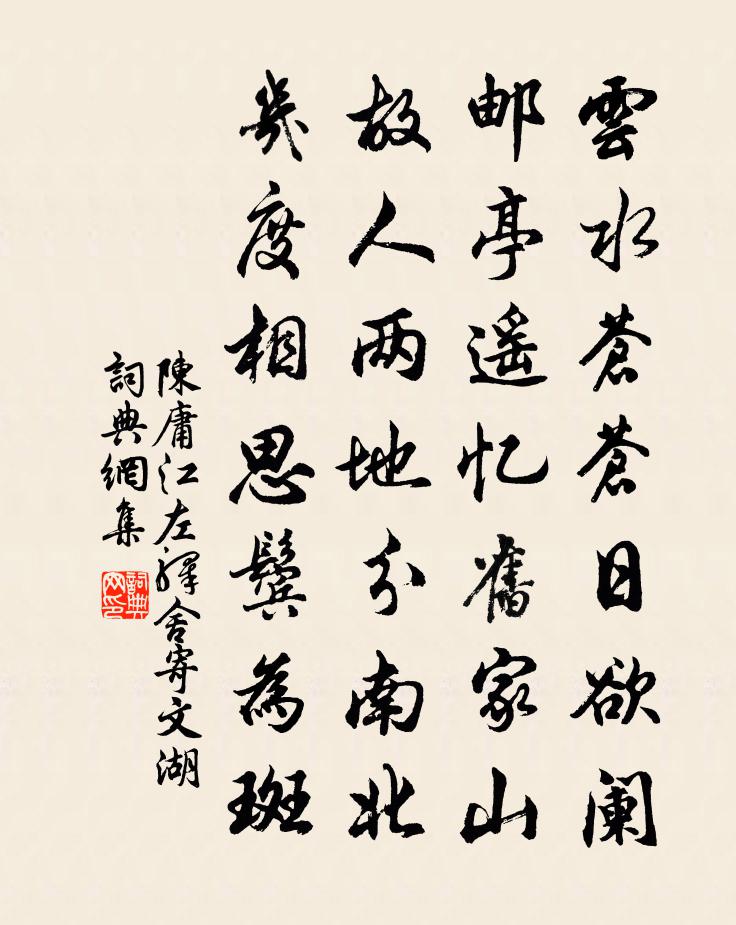 雲水蒼蒼日欲阑
邮亭遥忆舊家山
故人两地分南北
幾度相思鬓為斑
陳庸江左驛舍寄文湖
詞典網集
詞典网印